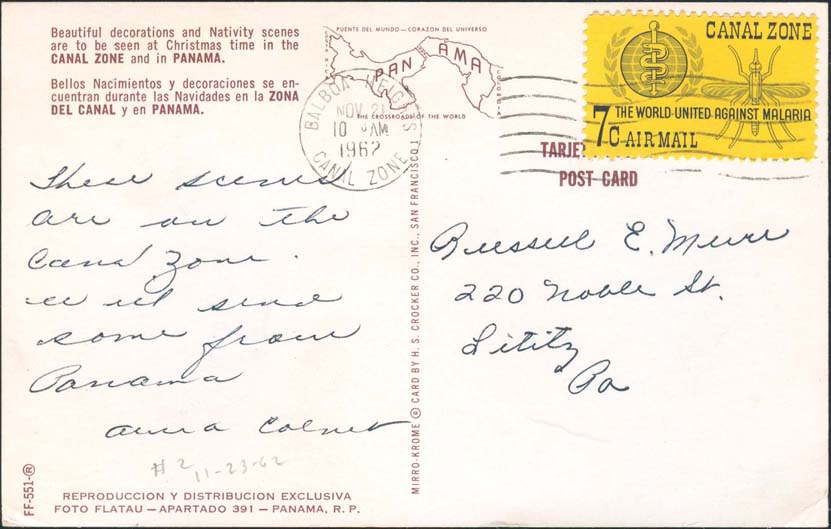 Beautiful decorations and Nativity scenes
are to be seen at Christmas time in the
CANAL ZONE and in PANAMA.
Bellos Nacimientos y decoraciones se en-
cuentran durante las Navidades en la ZONA
DEL CANAL y en PANAMA.
PUENTE DEL MUNDO – CORAZON DEL UNIVERSO
COSTA RICA
PANAMA
COLOMBIA
THE CROSSROADS OF THE WORLD
BALBOA HEIGHTS
NOV 21
10 AM
1962
CANAL ZONE
CANAL ZONE
THE WORLD UNITED AGAINST MALARIA
7c AIR MAIL
POST CARD
These scenes
are on the
Canal Zone.
will send
some from
Panama
Anna
# 2 11-23-62
Russell E.
220 Noble St.
Lititz
Pa
MIRRO-KROME ® CARD BY H. S. CROCKER CO., INC., SAN FRANCISCO 1
FF-551-®
REPRODUCCION Y DISTRIBUCION EXCLUSIVA
FOTO FLATAU – APARTADO 391 – PANAMA, R. P.